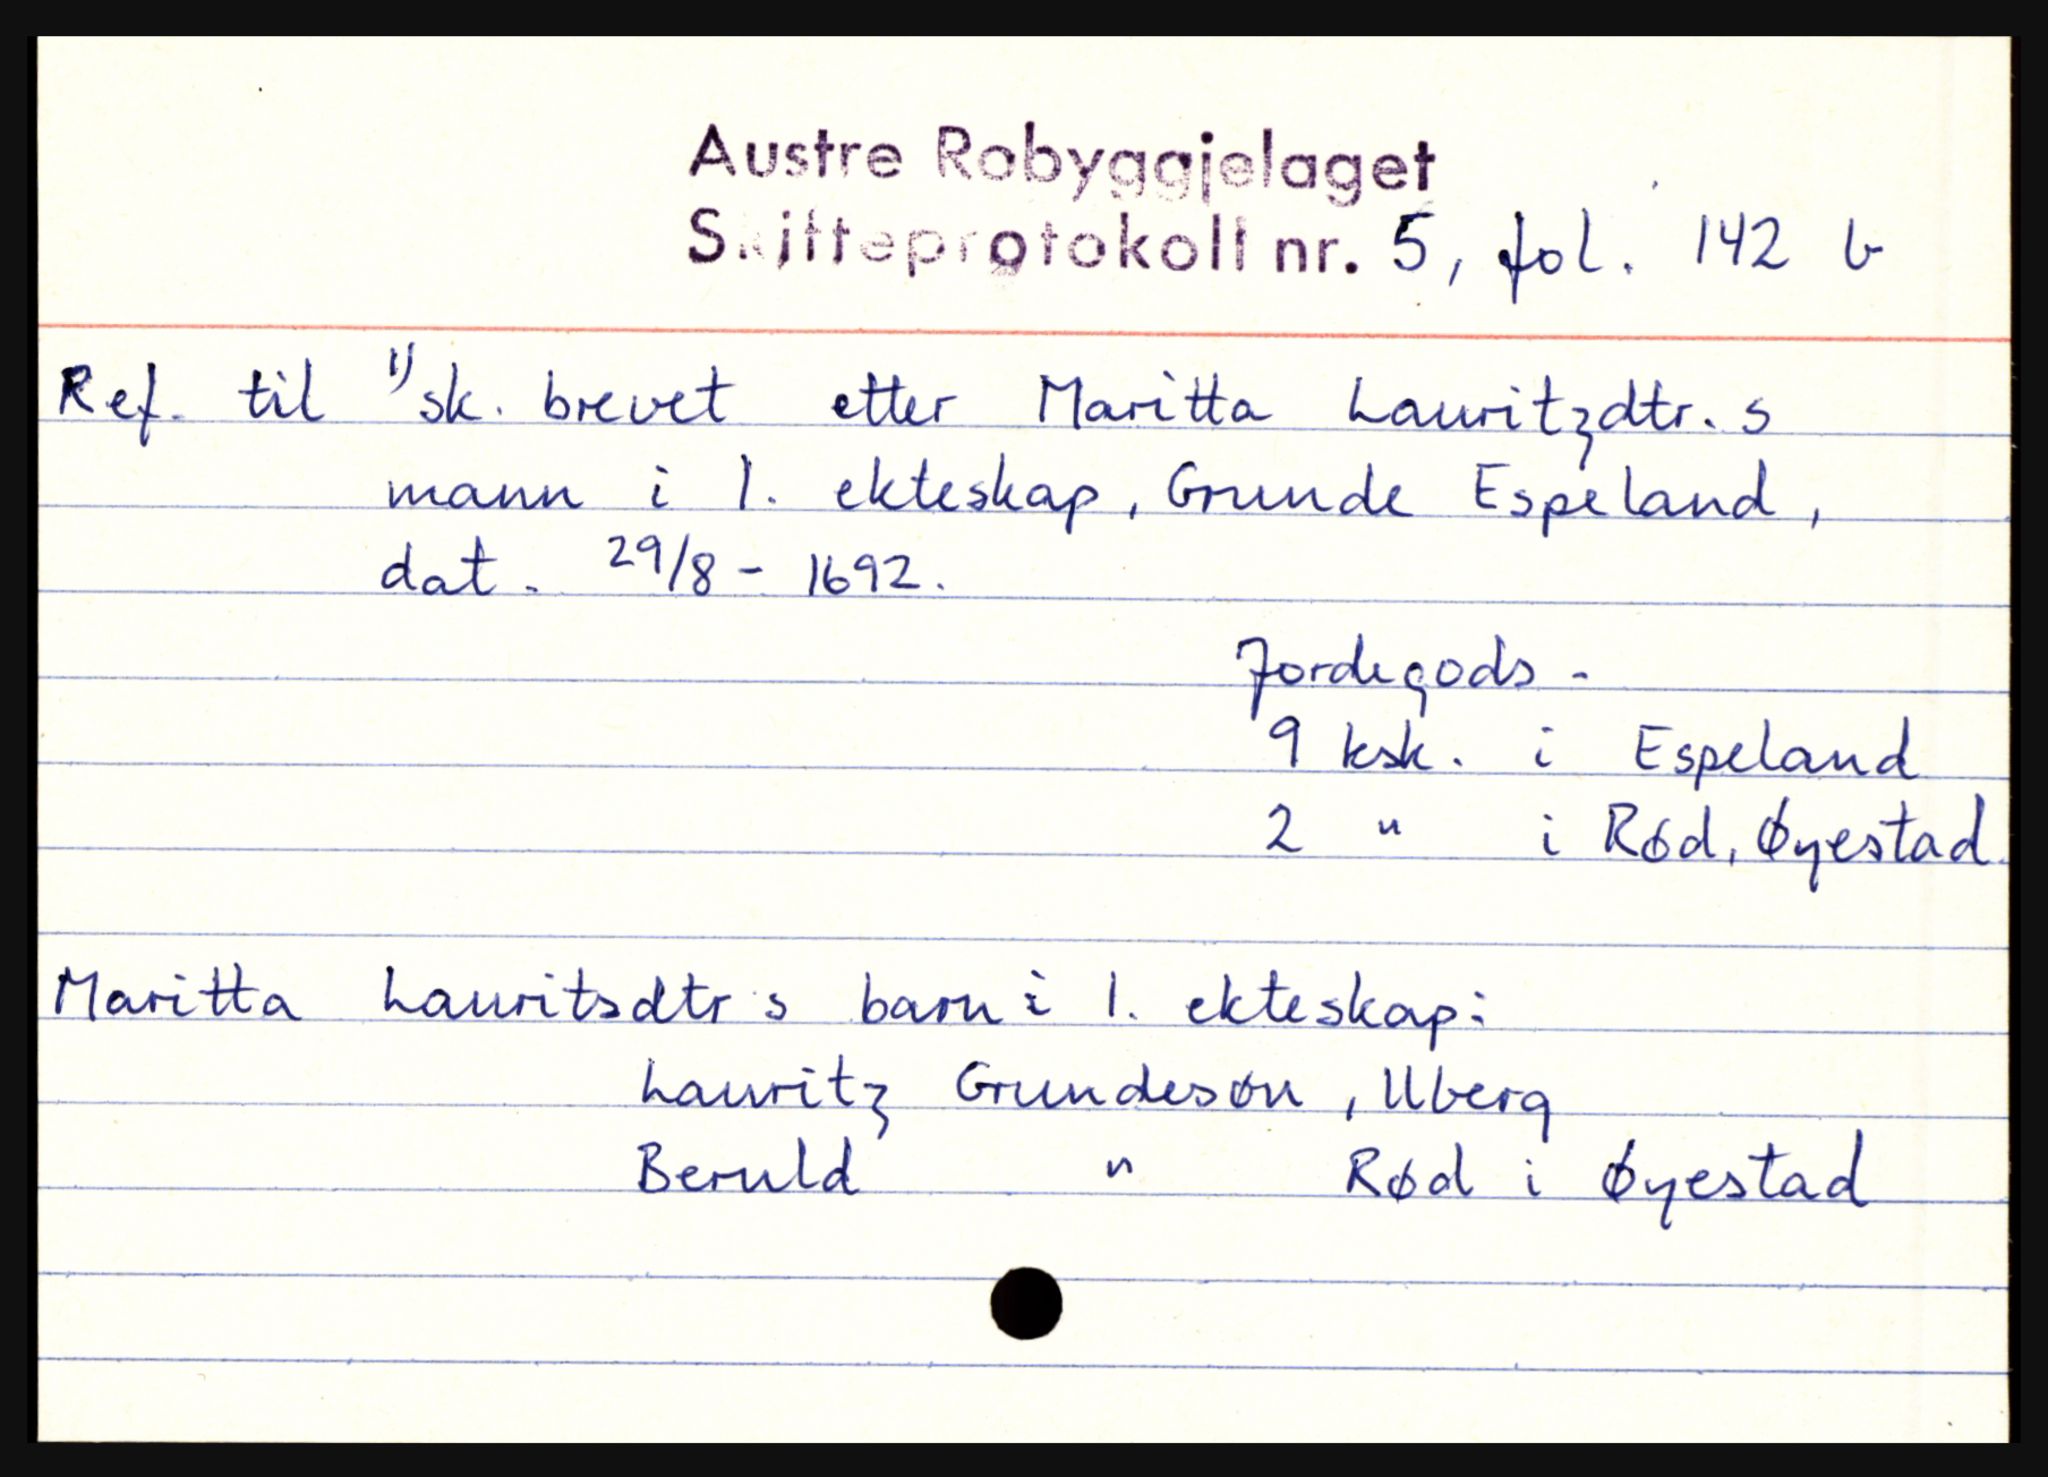 Austre Robyggjelaget
Skifteprotokoll nr. 5, fol. 142 b
Ref. til 1) sk. brevet etter Maritta Lauritzdtr. s
mann i 1. ekteskap, Grunde Espeland,
dat. 29/8 - 1692.
Jordegods -
9 ksk. i Espeland
2 " i Rød, Øyestad.
Maritta Lauritsdtr s barn i 1. ekteskap:
Lauritz Grundeson, Uberg
Beruld " Rød i Øyestad